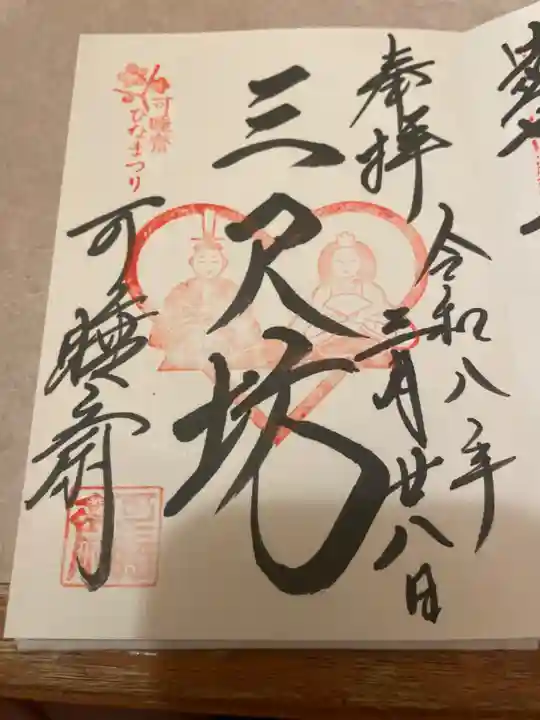 奉拝
令和八年
三月廿八日
三尺坊
可睡斎
ひなまつり
可睡齋